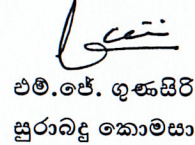 එම්.ජේ. ගුණසිරි
සුරාබදු කොමසා